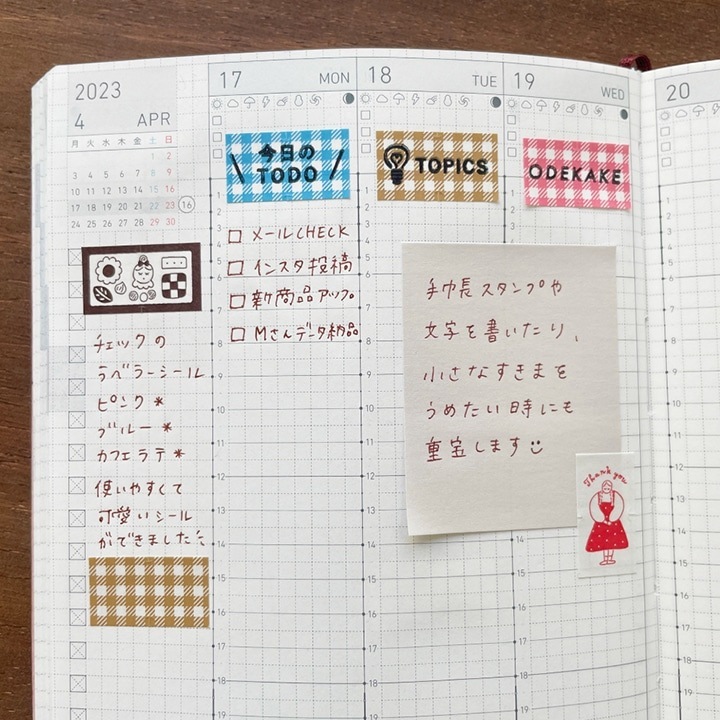 2023
4 APR
月 火 水 木 金 土 日
1 2
3 4 5 6 7 8 9
10 11 12 13 14 15 16
17 18 19 20 21 22 23 16
24 25 26 27 28 29 30
チェックの
ラベラーシール
ピンク＊
ブルー＊
カフェラテ＊
使いやすくて
可愛いシール
ができました
17 MON
今日の
TODO
メールCHECK
インスタ投稿
新商品アップ
Mさんデータ納品
18 TUE
TOPICS
19 WED
ODEKAKE
手帳スタンプや
文字を書いたり、
小さなすきまを
うめたい時にも
重宝します
Thank you
20
1
2
3
4
5
6
7
8
9
10
11
12
13
14
15
16
17
18
19